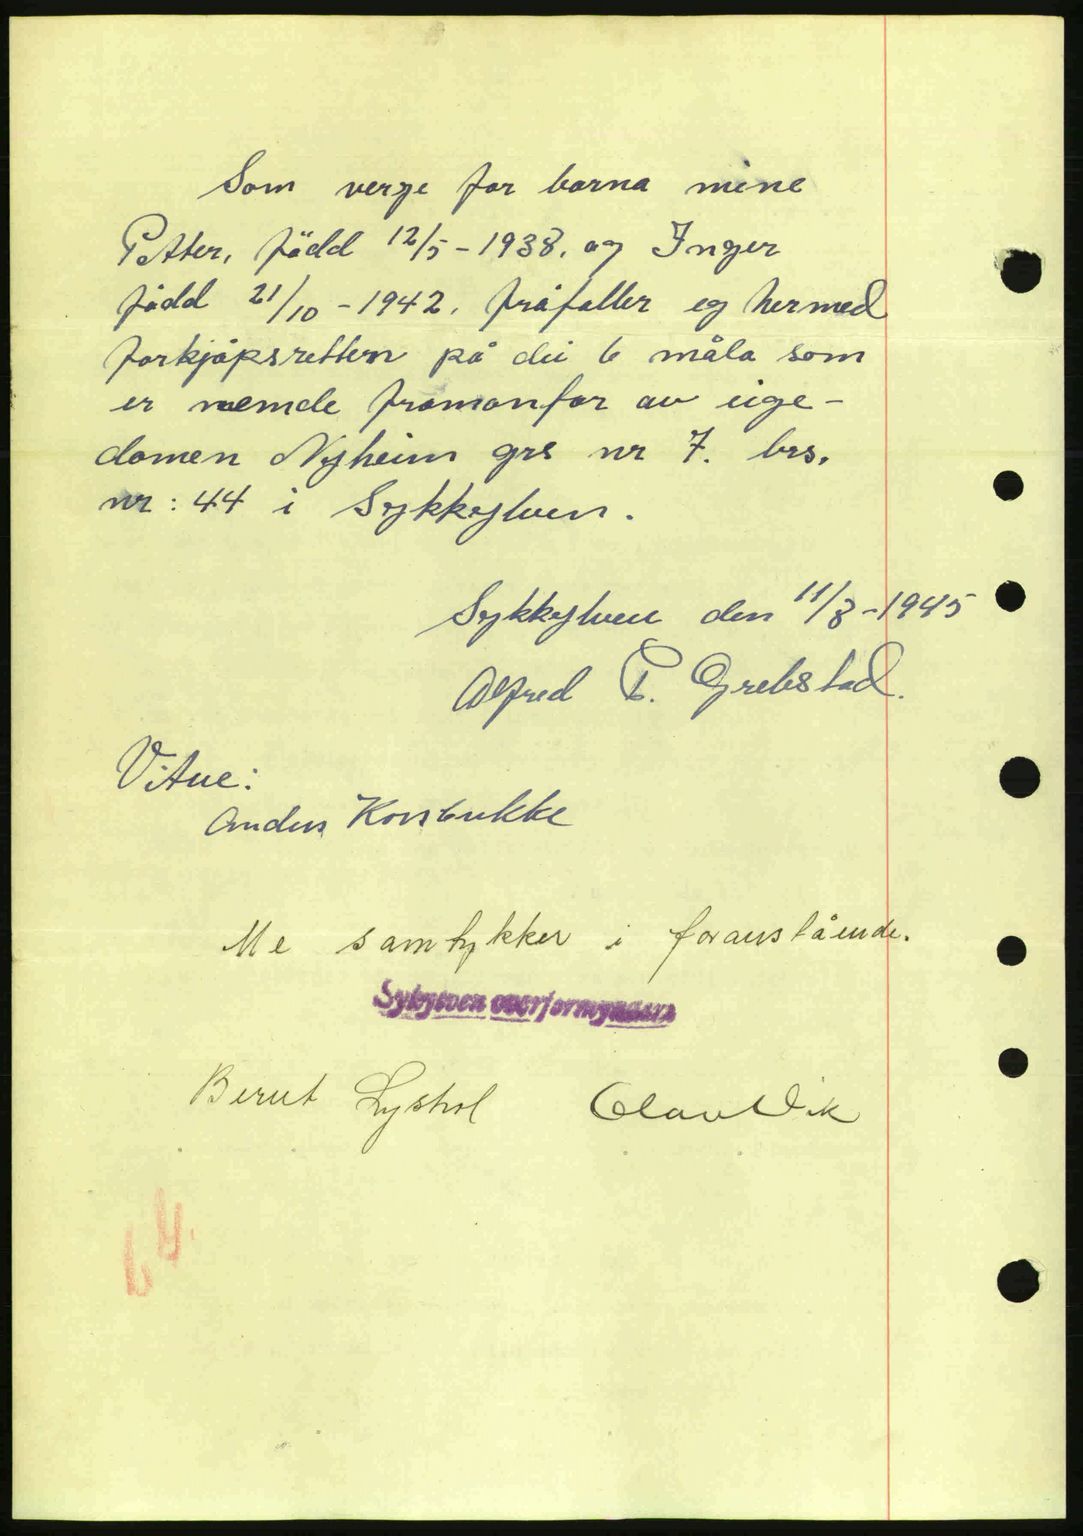 Som verge for borna mine
Petter, född 12/5-1938, og Inger
född 21/10-1942, fråfaller eg hermed
forkjøpsretten på dei 6 måla som
er nemde framanfor av eige-
domen Nyheim grs nr 7. brs.
nr: 44 i Sykkylven.
Sykkylven den 11/8-1945
Alfred P. Grebstad.
Vitne:
Anders Korsbukke
Me samtykker i foranståande.
Sykkylven overformynderi
Bernt Lystrol Olav Vik